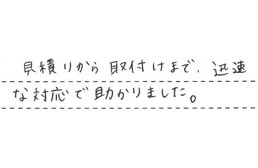 見積りから取付けまで、迅速
な対応で助かりました。